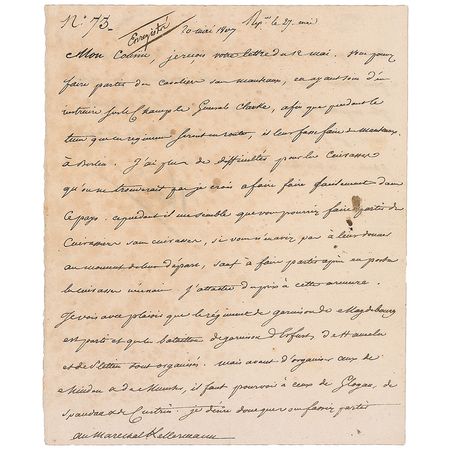 No. 73.
Enregistré
20 mai 1807 Rep. le 27. mai
Mon Cousin, je reçois votre lettre du 12 mai. Vous pouvez
faire partir des cavaliers sans manteaux, en ayant soin d'en
instruire sur le champ le Général Clarke, afin que pendant le
tems que ces régimens seront en route, il leur fasse faire des manteaux
à Berlin. J'ai plus de difficultés pour les Cuirasses
qu'on ne trouverait pas je crois à faire faire facilement dans
ce pays. cependant il me semble que vous pourriez faire partir des
Cuirassiers sans cuirasses, si vous n'en avez pas à leur donner
au moment de leur départ, sauf à faire partir après en poste
les cuirasses J'attache du prix à cette armure.
Je vois avec plaisir que le régiment de garnison de Magdebourg
est parti et que les bataillons de garnison d'Erfurt, de Hameln
et de Stettin sont organisés. mais avant d'organiser ceux de
Minden et de Munster, il faut pourvoir à ceux de Glogau, de
Spandau et de Custrin. je désire donc que vous fassiez partir
au Maréchal Kellermann